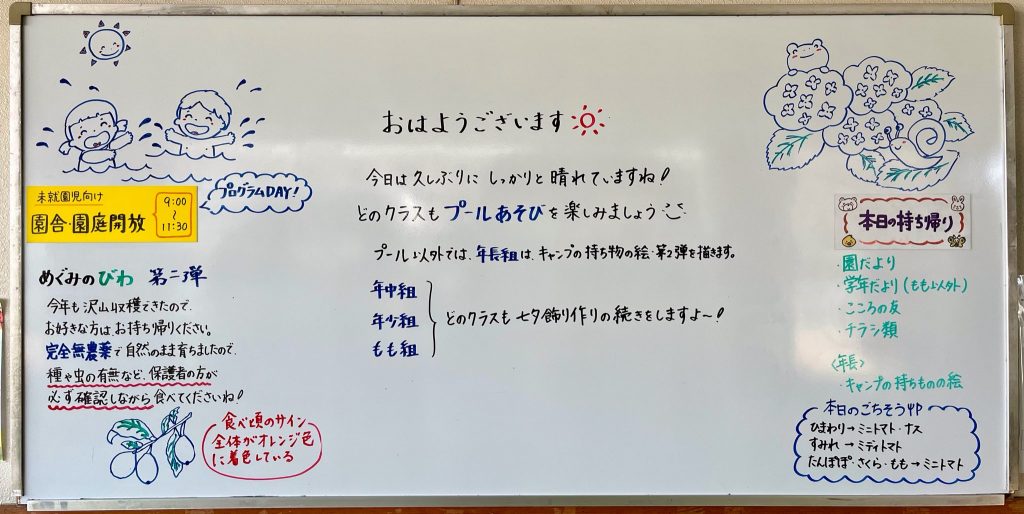 おはようございます
今日は久しぶりに しっかりと 晴れていますね!
どのクラスも プールあそびを 楽しみましょう
プール以外では、年長組は、キャンプの持ち物の絵・第2弾を描きます。
年中組
年少組
もも組
どのクラスも 七夕飾り作りの続きをしますよ〜!
プログラムDAY!
未就園児向け
園舎・園庭開放
9:00
〜
11:30
めぐみのびわ 第二弾
今年も沢山収穫できたので、
お好きな方は、お持ち帰りください。
完全無農薬で自然のまま育ちましたので、
種や虫の有無など、保護者の方が
必ず確認しながら食べてくださいね!
食べ頃のサイン
全体がオレンジ色
に着色している
本日の持ち帰り
・園だより
・学年だより(もも以外)
・こころの友
・チラシ類
〈年長〉
・キャンプの持ちものの絵
本日のごちそう
ひまわり→ミニトマト・ナス
すみれ→ミディトマト
たんぽぽ・さくら・もも→ミニトマト